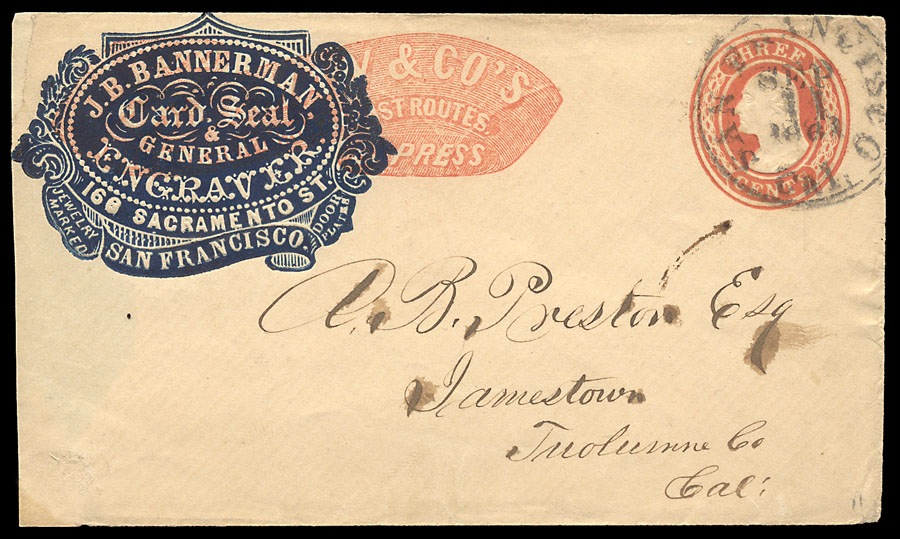 J.B. BANNERMAN.
Card. Seal
&
GENERAL
ENGRAVER
160 SACRAMENTO ST.
JEWELRY MARKED
DOOR PLATES
SAN FRANCISCO.
& CO'S
ST ROUTES
PRESS
THREE
CENTS
SAN FRANCISCO
SEP
CAL.
A. B. Preston Esq
Jamestown
Tuolumne Co
Cal: